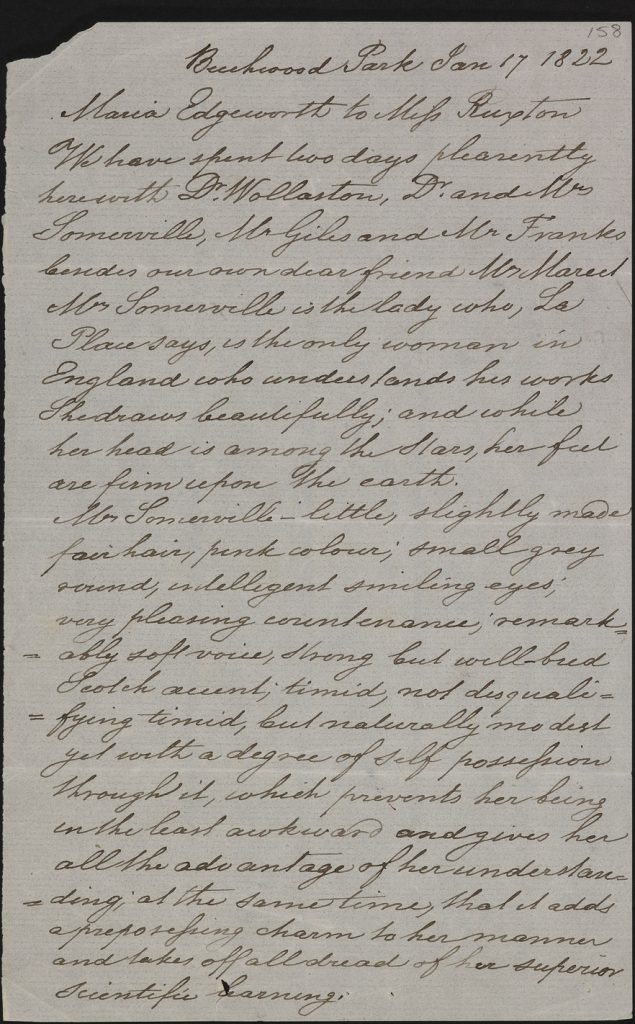 158
Beechwood Park Jan 17 1822
Maria Edgeworth to Miss Ruxton
We have spent two days pleasently
here with Dr. Wollaston, Dr. and Mrs
Somerville, Mr Giles and Mr Franks
besides our own dear friend Mrs Marcet
Mrs Somerville is the lady who, La
Place says, is the only woman in
England who understands his works
She draws beautifully; and while
her head is among the stars, her feet
are firm upon the earth.
Mrs Somerville – little, slightly made
fair hair, pink colour; small grey
round, intelligent smiling eyes;
very pleasing countenance; remark=
=ably soft voice, strong but well-bred
Scotch accent; timid, not disquali=
=fying timid, but naturally modest
yet with a degree of self possession
through it, which prevents her being
in the least awkward and gives her
all the advantage of her understan=
=ding; at the same time, that it adds
a prepossessing charm to her manner
and takes off all dread of her superior
scientific learning.